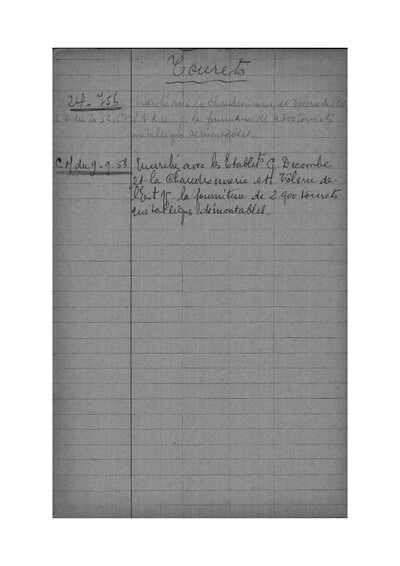 Tourets
24-756
Marché avec la Chaudronnerie et Tôlerie de l'Est
la fourniture de 4.700 tourets
métalliques démontables.
CM du 9-9.58. Marché avec les Etablts G. Decombe
et la Chaudronnerie et Tôlerie de
l'Est pr. la fourniture de 2.900 tourets
métalliques démontables.